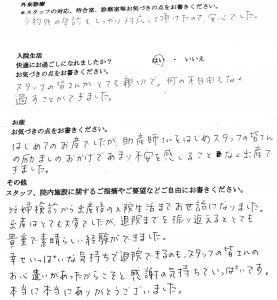 外来診療
＊スタッフの対応、待合室、診察室等お気づきの点をお書きください。
予約外の受診もしっかり対応して頂けたので、安心でした。
入院生活
快適にお過ごしになれましたか？ はい・いいえ
お気づきの点をお書きください。
スタッフの皆さんがとても親切で、何の不自由もなく
過すことができました。
お産
お気づきの点をお書きください。
はじめてのお産でしたが、助産師さんをはじめスタッフの皆さん
の励ましのおかげであまり不安を感じることなく出産で
きました。
その他
スタッフ、院内施設に関するご指摘やご要望などご自由にお書きください。
妊婦検診から出産後の入院生活までお世話になりました。
出産はとても大変でしたが、退院までを振り返るととても
貴重で素晴らしい経験ができました。
幸せいっぱいな気持ちで退院できるのも、スタッフの皆さんの
お心遣いがあったからこそと感謝の気持ちでいっぱいです。
本当に本当にありがとうございました。